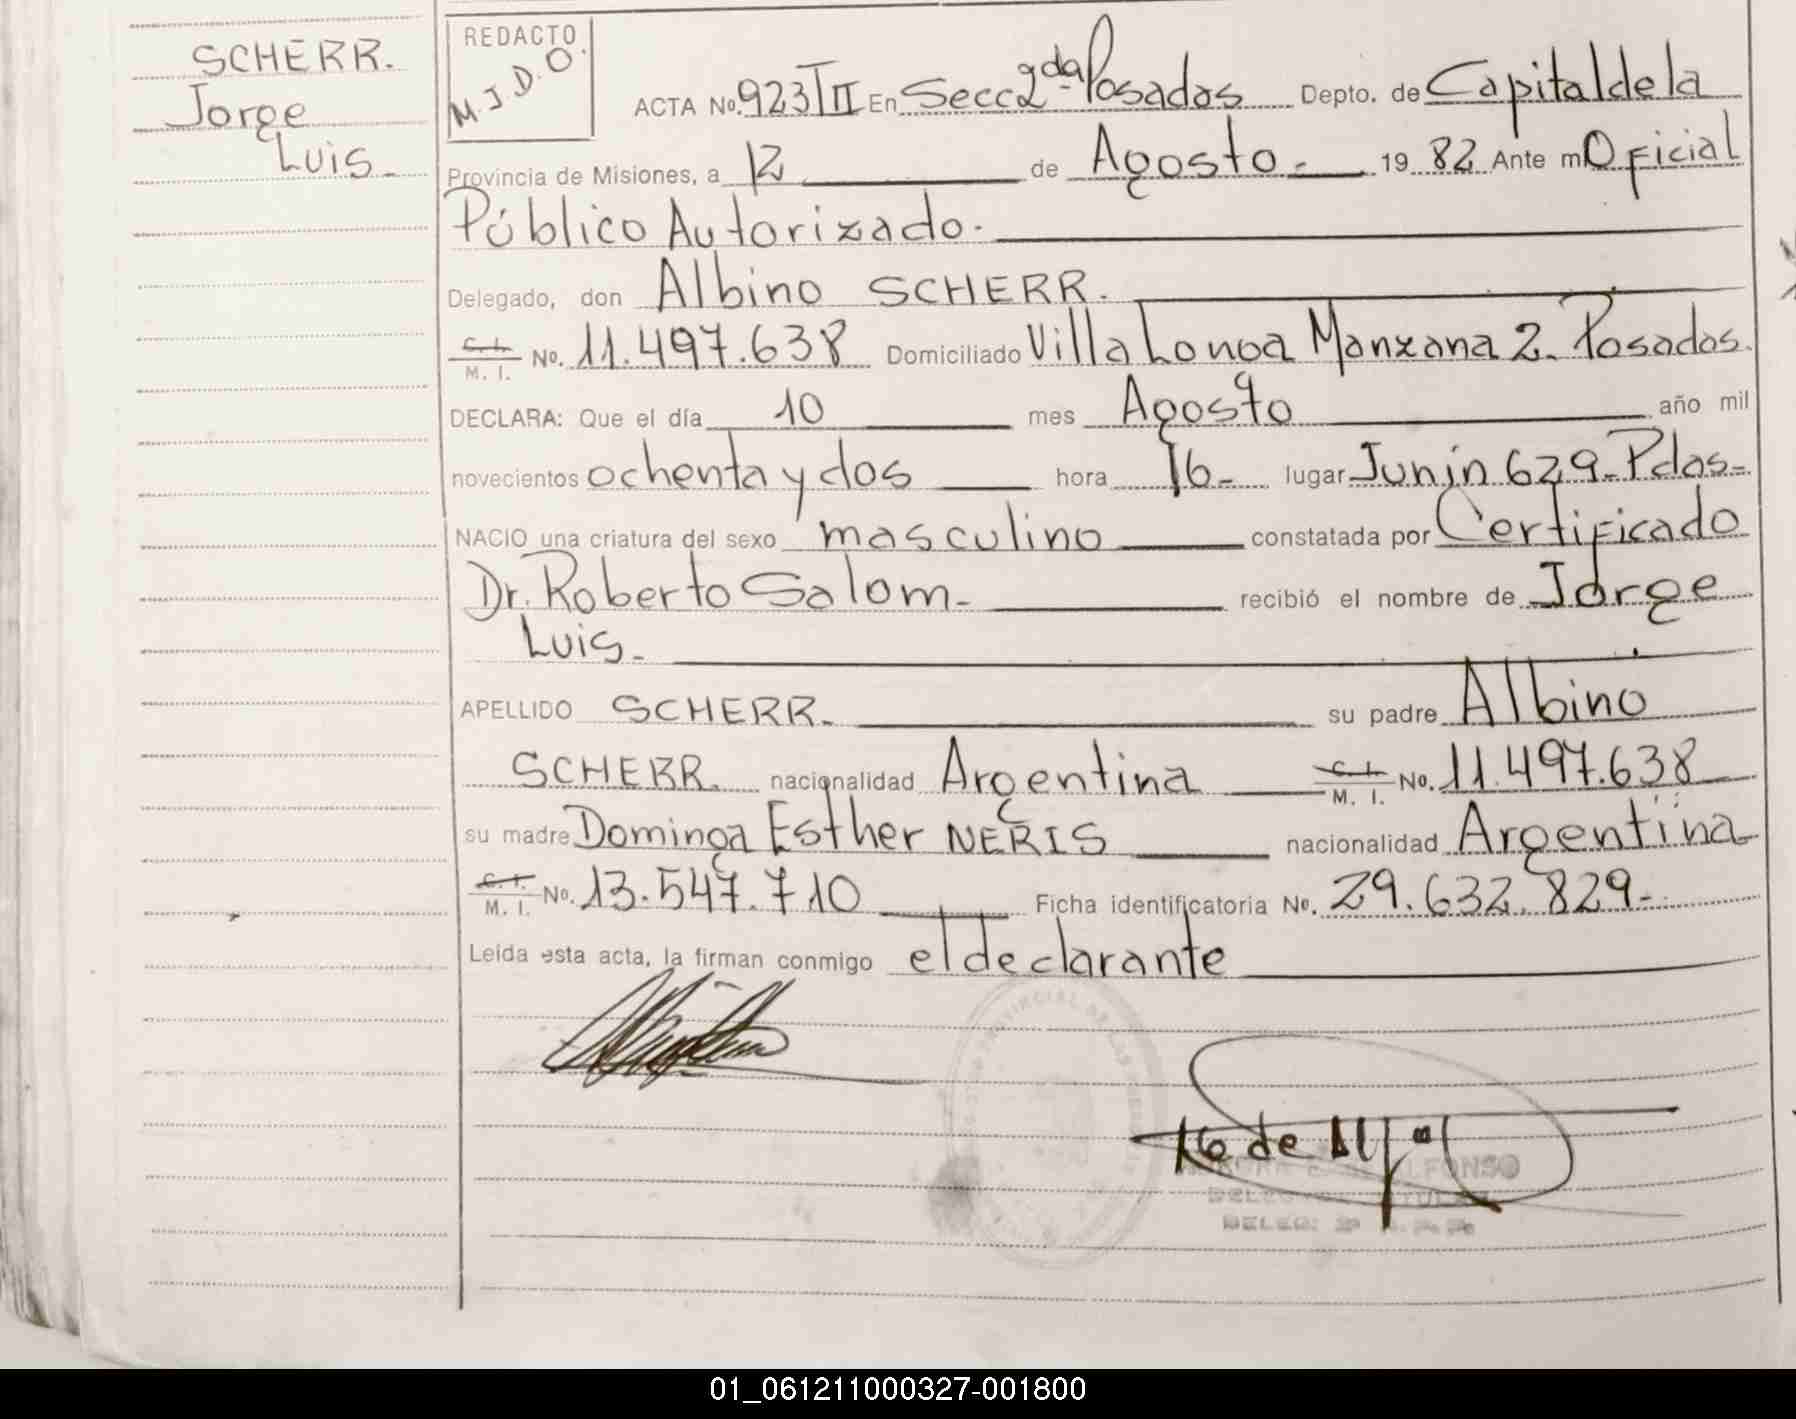 SCHERR.
Jorge
Luis -
REDACTO
M.J.D.O.
ACTA No. 923 TII En Secc 2da- Posadas Depto. de Capital de la
Provincia de Misiones, a 12 de Agosto - 19 82 Ante mi Oficial
Público Autorizado.
Delegado, don Albino SCHERR.
C. I. M. I. No. 11.497.638 Domiciliado Villa Longa Manzana 2. Posadas.
DECLARA: Que el día 10 mes Agosto año mil
novecientos ochenta y dos hora 16- lugar Junín 629- Pdas-
NACIO una criatura del sexo masculino constatada por Certificado
Dr. Roberto Salom - recibió el nombre de Jorge
Luis -
APELLIDO SCHERR - su padre Albino
SCHERR. nacionalidad Argentina C. I. M. I. No. 11.497.638
su madre Dominga Esther NERIS nacionalidad Argentina
C. I. M. I. No. 13.547.710 Ficha identificatoria No. 29.632.829-
Leída esta acta, la firman conmigo el declarante
ALFONSO
01_061211000327-001800